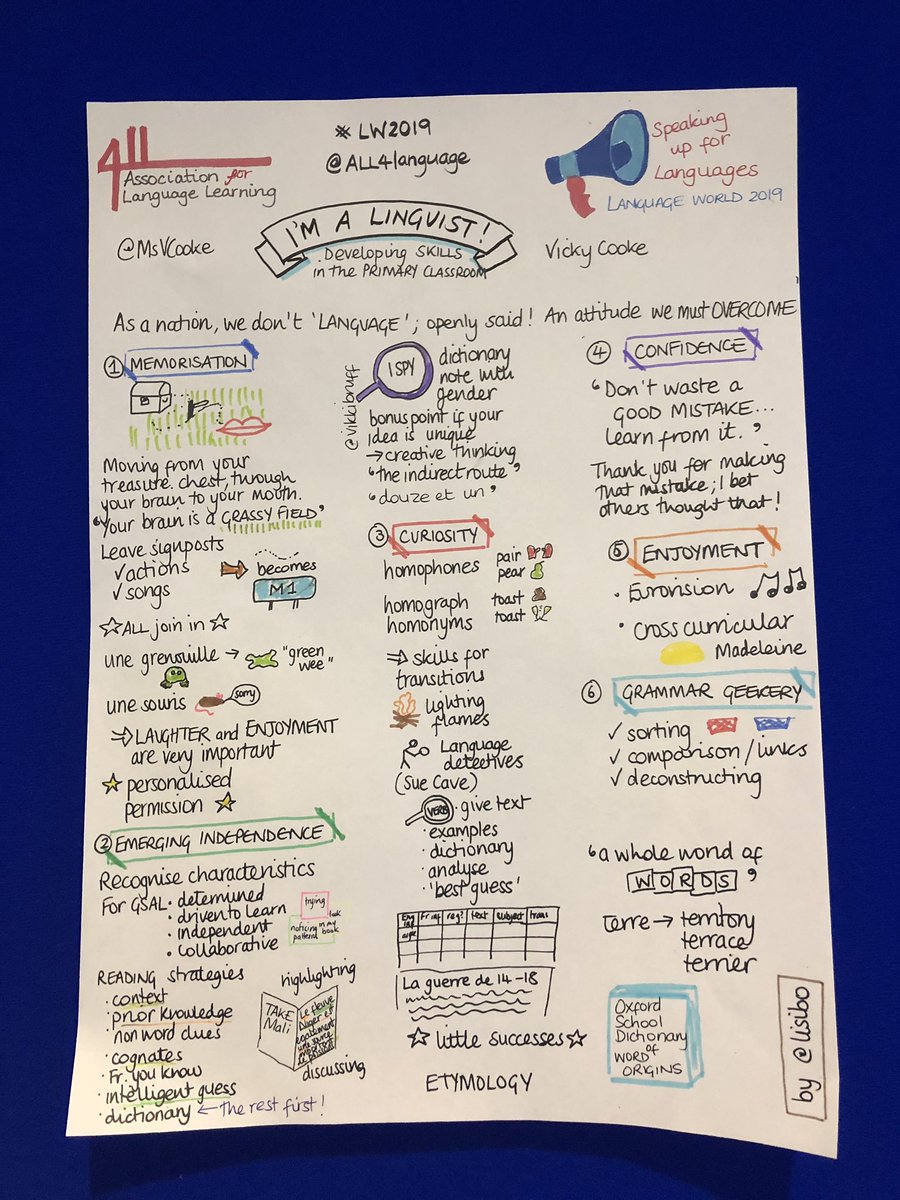 ALL
Association for
Language Learning
* LW2019
@ALL4language
Speaking
up for
Languages
LANGUAGE WORLD 2019
@MsVCooke
I'M A LINGUIST!
Developing SKILLS
in the PRIMARY CLASSROOM
Vicky Cooke
As a nation, we don't 'LANGUAGE'; openly said! An attitude we must OVERCOME
① MEMORISATION
Moving from your
treasure chest, through
your brain to your mouth.
"Your brain is a GRASSY FIELD"
Leave signposts
✓actions
✓songs
becomes
M1
☆ALL join in☆
une grenouille → "green
wee"
une souris
sorry
⇒ LAUGHTER and ENJOYMENT
are very important
☆ personalised
permission ☆
② EMERGING INDEPENDENCE
Recognise characteristics
For GSAL · determined
· driven to learn
· independent
· collaborative
trying
noticing
pattens
task
in my
book
READING strategies
· context
· prior knowledge
· non word clues
· cognates
· Fr. you know
· intelligent guess
· dictionary ← The rest first!
highlighting
TAKE
Mali
Le fleuve
Niger est
également
une
discussing
@vikkibruff
I SPY
dictionary
note with
gender
bonus point if your
idea is unique
→ creative thinking
"the indirect route"
"douze et un"
③ CURIOSITY
homophones
pair
pear
homograph
homonyms
toast
toast
⇒ skills for
transitions
lighting
flames
Language
detectives
(Sue Cave)
VERB
· give text
· examples
· dictionary
· analyse
· 'best guess'
Eng
inf
Fr inf
reg?
text
subject
trans
La guerre de 14-18
☆ little successes☆
ETYMOLOGY
④ CONFIDENCE
"Don't waste a
GOOD MISTAKE...
learn from it."
Thank you for making
that mistake; I bet
others thought that!
⑤ ENJOYMENT
· Eurovision
· cross curricular
Madeleine
⑥ GRAMMAR GEEKERY
✓ sorting
✓ comparison / links
✓ deconstructing
"a whole world of
WORDS"
terre → territory
terrace
terrier
Oxford
School
Dictionary
of
WORD
ORIGINS
by @lisibo